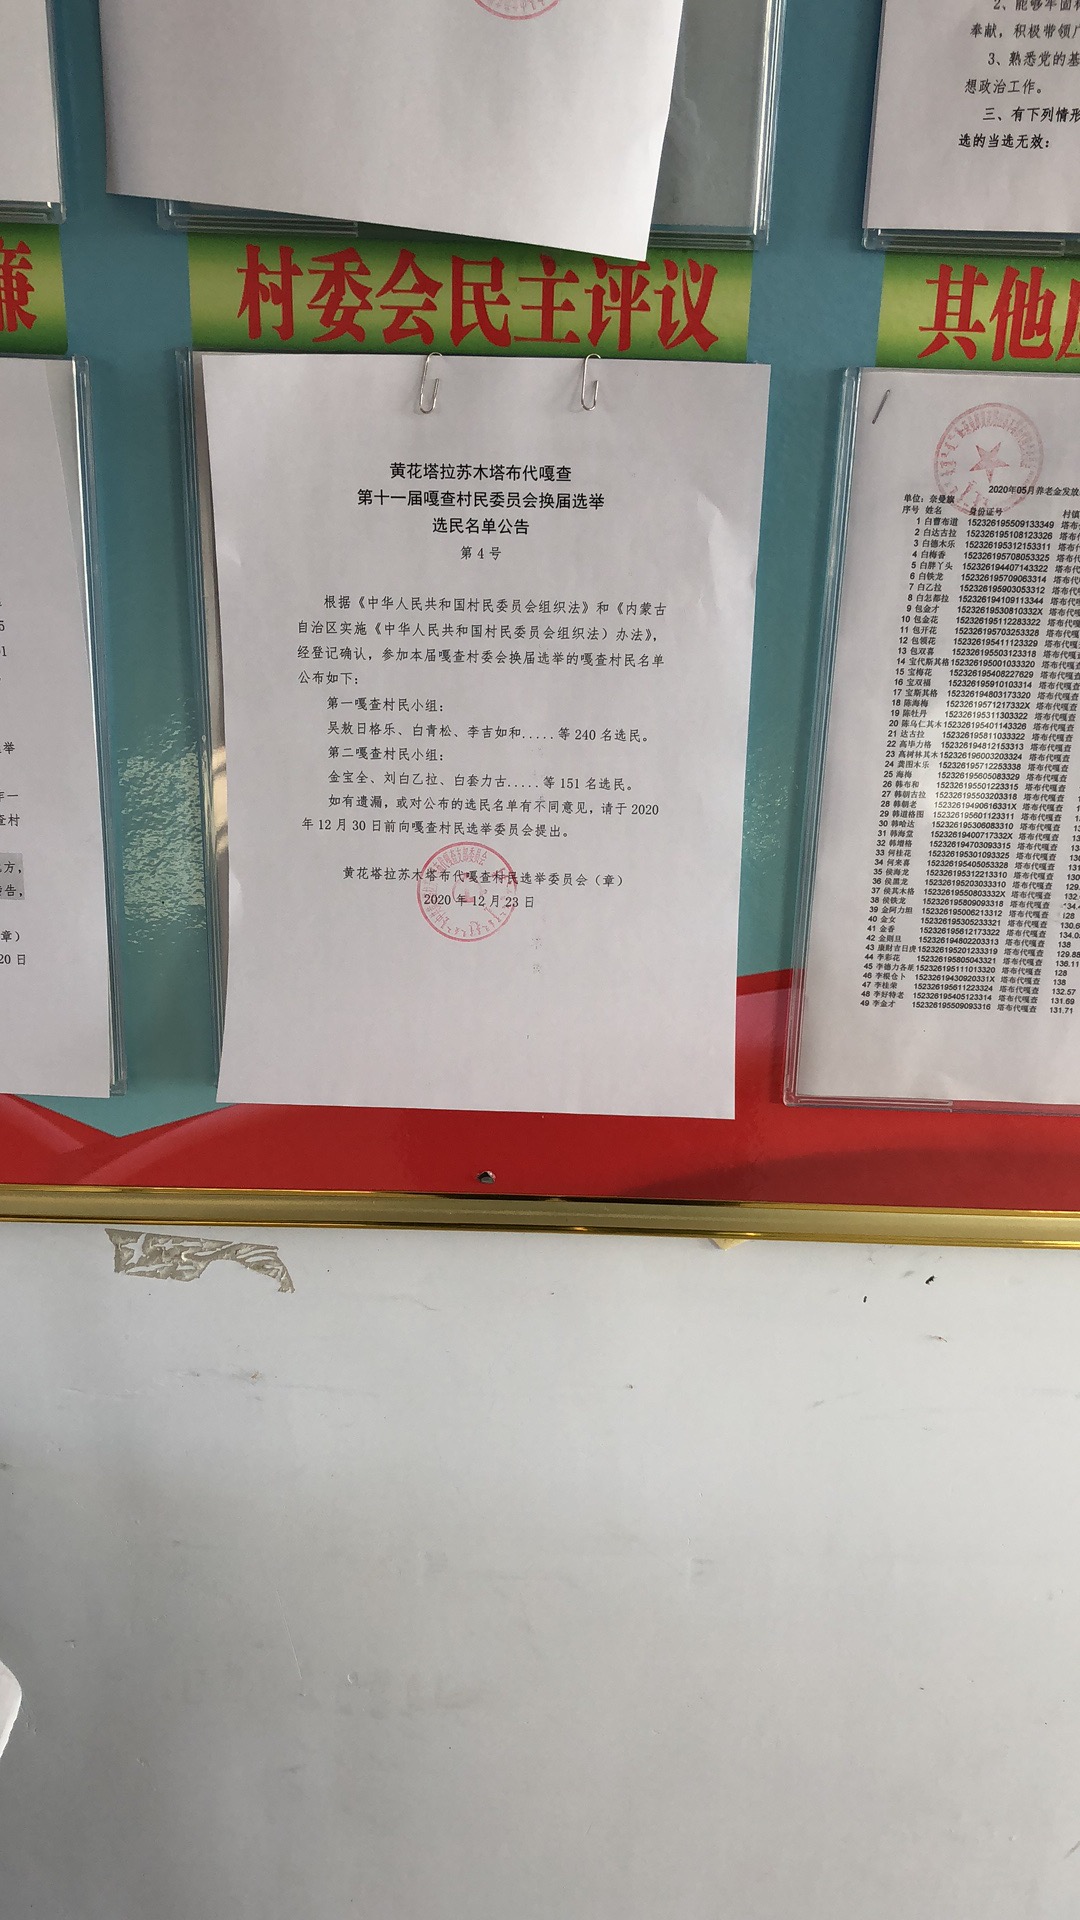 2、能够牢固
奉献，积极带领
3、熟悉党的基
想政治工作。
三、有下列情形
选的当选无效：
廉
村委会民主评议
其他
黄花塔拉苏木塔布代嘎查
第十一届嘎查村民委员会换届选举
选民名单公告
第 4 号
根据《中华人民共和国村民委员会组织法》和《内蒙古
自治区实施《中华人民共和国村民委员会组织法）办法》，
经登记确认，参加本届嘎查村委会换届选举的嘎查村民名单
公布如下：
第一嘎查村民小组：
吴敖日格乐、白青松、李吉如和.....等 240 名选民。
第二嘎查村民小组：
金宝全、刘白乙拉、白套力古.....等 151 名选民。
如有遗漏，或对公布的选民名单有不同意见，请于 2020
年 12 月 30 日前向嘎查村民选举委员会提出。
黄花塔拉苏木塔布代嘎查村民选举委员会（章）
2020 年 12 月 23 日
2020年05月养老金发放
单位：奈曼旗
序号 姓名 身份证号 村镇
1 白曹布道 152326195509133349 塔布
2 白达古拉 152326195108123326 塔布
3 白德木乐 152326195312153311 塔布
4 白梅香 152326195708053325 塔布
5 白胖丫头 152326194407143322 塔布
6 白铁龙 152326195709063314 塔布
7 白乙拉 152326195903053312 塔布
8 白怎都拉 152326194109113344 塔布
9 包金才 15232619530810332X 塔布代
10 包金花 152326195112283322 塔布代
11 包开花 152326195703253328 塔布代
12 包领花 152326195411123329 塔布代
13 包双喜 152326195503123318 塔布代
14 宝代斯其格 152326195001033320 塔布代
15 宝梅花 152326195408227629 塔布代
16 宝双福 152326195910103314 塔布代
17 宝斯其格 152326194803173320 塔布代
18 陈海梅 15232619571217332X 塔布代嘎
19 陈牡丹 152326195311303322 塔布代嘎
20 陈乌仁其木 152326195401143326 塔布代嘎
21 达古拉 152326195110033322 塔布代嘎
22 高毕力格 152326194812153313 塔布代嘎
23 高树林其木 152326196003203324 塔布代嘎
24 龚图木乐 152326195712253338 塔布代嘎查
25 海梅 152326195605083329 塔布代嘎查
26 韩布和 152326195501223315 塔布代嘎查
27 韩朝古拉 152326195503203318 塔布代嘎查
28 韩朝老 15232619490616331X 塔布代嘎查
29 韩道格图 152326195601123311 塔布代嘎查
30 韩哈达 152326195306083310 塔布代嘎查
31 韩海堂 15232619400717332X 塔布代嘎查
32 韩增格 152326194703093315 塔布代嘎查
33 何桂花 152326195301093325 塔布代嘎查
34 何来喜 152326195405053328 塔布代嘎查
35 侯海龙 152326195312213310 塔布代嘎查
36 侯黑龙 152326195203033310 塔布代嘎查 129.
37 侯其木格 15232619550803332X 塔布代嘎查 132.
38 侯铁龙 152326195809093318 塔布代嘎查
39 金阿力坦 152326195006213312 塔布代嘎查 128
40 金女 152326195305233321 塔布代嘎查 130.6
41 金香 152326195612173322 塔布代嘎查 134.0
42 金则旦 152326194802203313 塔布代嘎查 138
43 康财吉日虎 152326195201233319 塔布代嘎查 129.88
44 李彩花 152326195805043321 塔布代嘎查 136.11
45 李德力各 152326195111013320 塔布代嘎查 128
46 李根仓卜 15232619430920331X 塔布代嘎查 138
47 李桂荣 152326195611223324 塔布代嘎查 132.57
48 李好特老 152326195405123314 塔布代嘎查 131.69
49 李金才 152326195509093316 塔布代嘎查 131.71